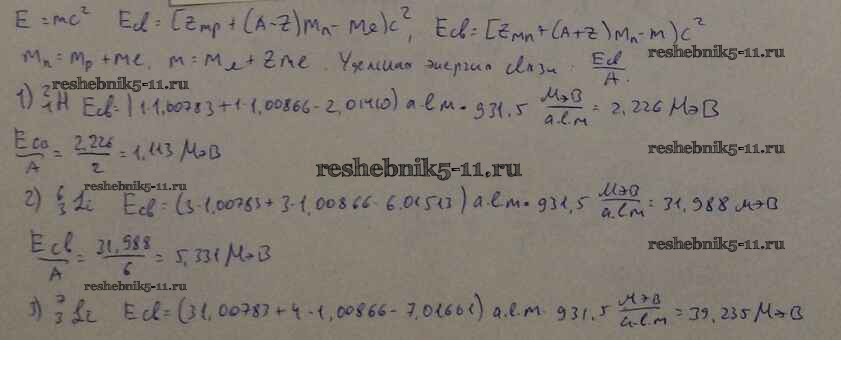 E = mc² Eсв = [Zmp + (A-Z)mn - Mя)c², Eсв = [Zmн + (A+Z)mn - m)c²
mн = mp + me, m = mя + Zme. Удельная энергия связи: Eсв/A.
reshebnik5-11.ru reshebnik5-11.ru
1) ²₁H Eсв = (1·1,00783 + 1·1,00866 - 2,01410) а.е.м · 931,5 МэВ/а.е.м = 2,226 МэВ
Eсв/A = 2,226/2 = 1,113 МэВ
reshebnik5-11.ru reshebnik5-11.ru
reshebnik5-11.ru
2) ⁶₃Li Eсв = (3·1,00783 + 3·1,00866 - 6,01513) а.е.м · 931,5 МэВ/а.е.м = 31,988 МэВ
reshebnik5-11.ru
Eсв/A = 31,988/6 = 5,331 МэВ
reshebnik5-11.ru
3) ⁷₃Li Eсв = (31,00783 + 4·1,00866 - 7,01601) а.е.м · 931,5 МэВ/а.е.м = 39,235 МэВ